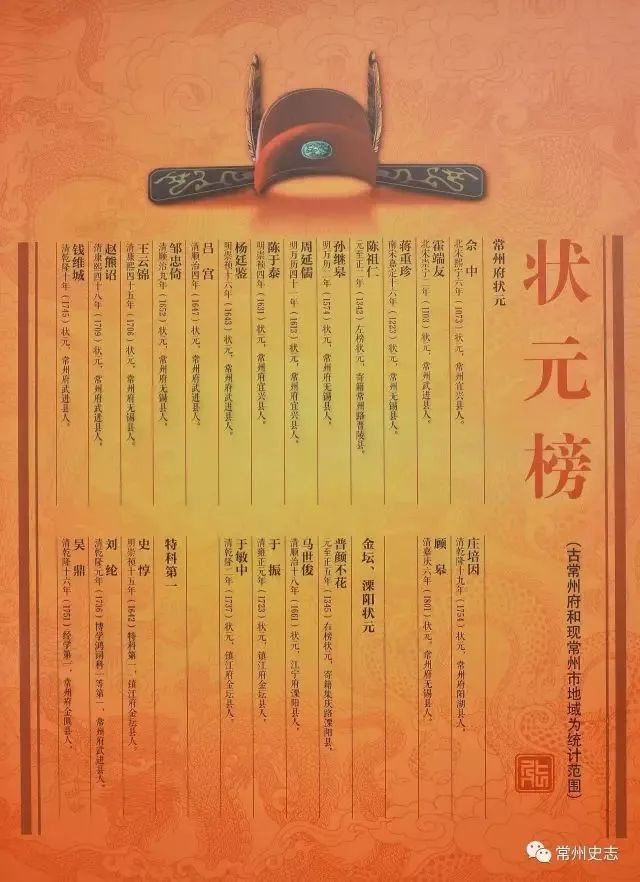 状元榜
(古常州府和现常州市地域为统计范围)
常州府状元
佘中
北宋熙宁六年(1073)状元，常州宜兴县人。
霍端友
北宋崇宁二年(1103)状元，常州武进县人。
蒋重珍
南宋嘉定十六年(1223)状元，常州无锡县人。
陈祖仁
元至正二年(1343)左榜状元，寄籍常州路晋陵县。
孙继皋
明万历二年(1574)状元，常州府无锡县人。
周延儒
明万历四十一年(1613)状元，常州府宜兴县人。
陈于泰
明崇祯四年(1631)状元，常州府宜兴县人。
杨廷鉴
明崇祯十六年(1643)状元，常州府武进县人。
吕宫
清顺治四年(1647)状元，常州府武进县人。
邹忠倚
清顺治九年(1652)状元，常州府无锡县人。
王云锦
清康熙四十五年(1706)状元，常州府无锡县人。
赵熊诏
清康熙四十八年(1709)状元，常州府武进县人。
钱维城
清乾隆十年(1745)状元，常州府武进县人。
庄培因
清乾隆十九年(1754)状元，常州府阳湖县人。
顾皋
清嘉庆六年(1801)状元，常州府无锡县人。
金坛、溧阳状元
普颜不花
元至正五年(1345)右榜状元，寄籍集庆路溧阳县。
马世俊
清顺治十八年(1661)状元，江宁府溧阳县人。
于振
清雍正元年(1723)状元，镇江府金坛县人。
于敏中
清乾隆二年(1737)状元，镇江府金坛县人。
特科第一
史惇
明崇祯十五年(1642)特科第一，镇江府金坛县人。
刘纶
清乾隆元年(1736)博学鸿词科一等第一，常州府武进县人。
吴鼎
清乾隆十六年(1751)经学第一，常州府金匮县人。
常州史志